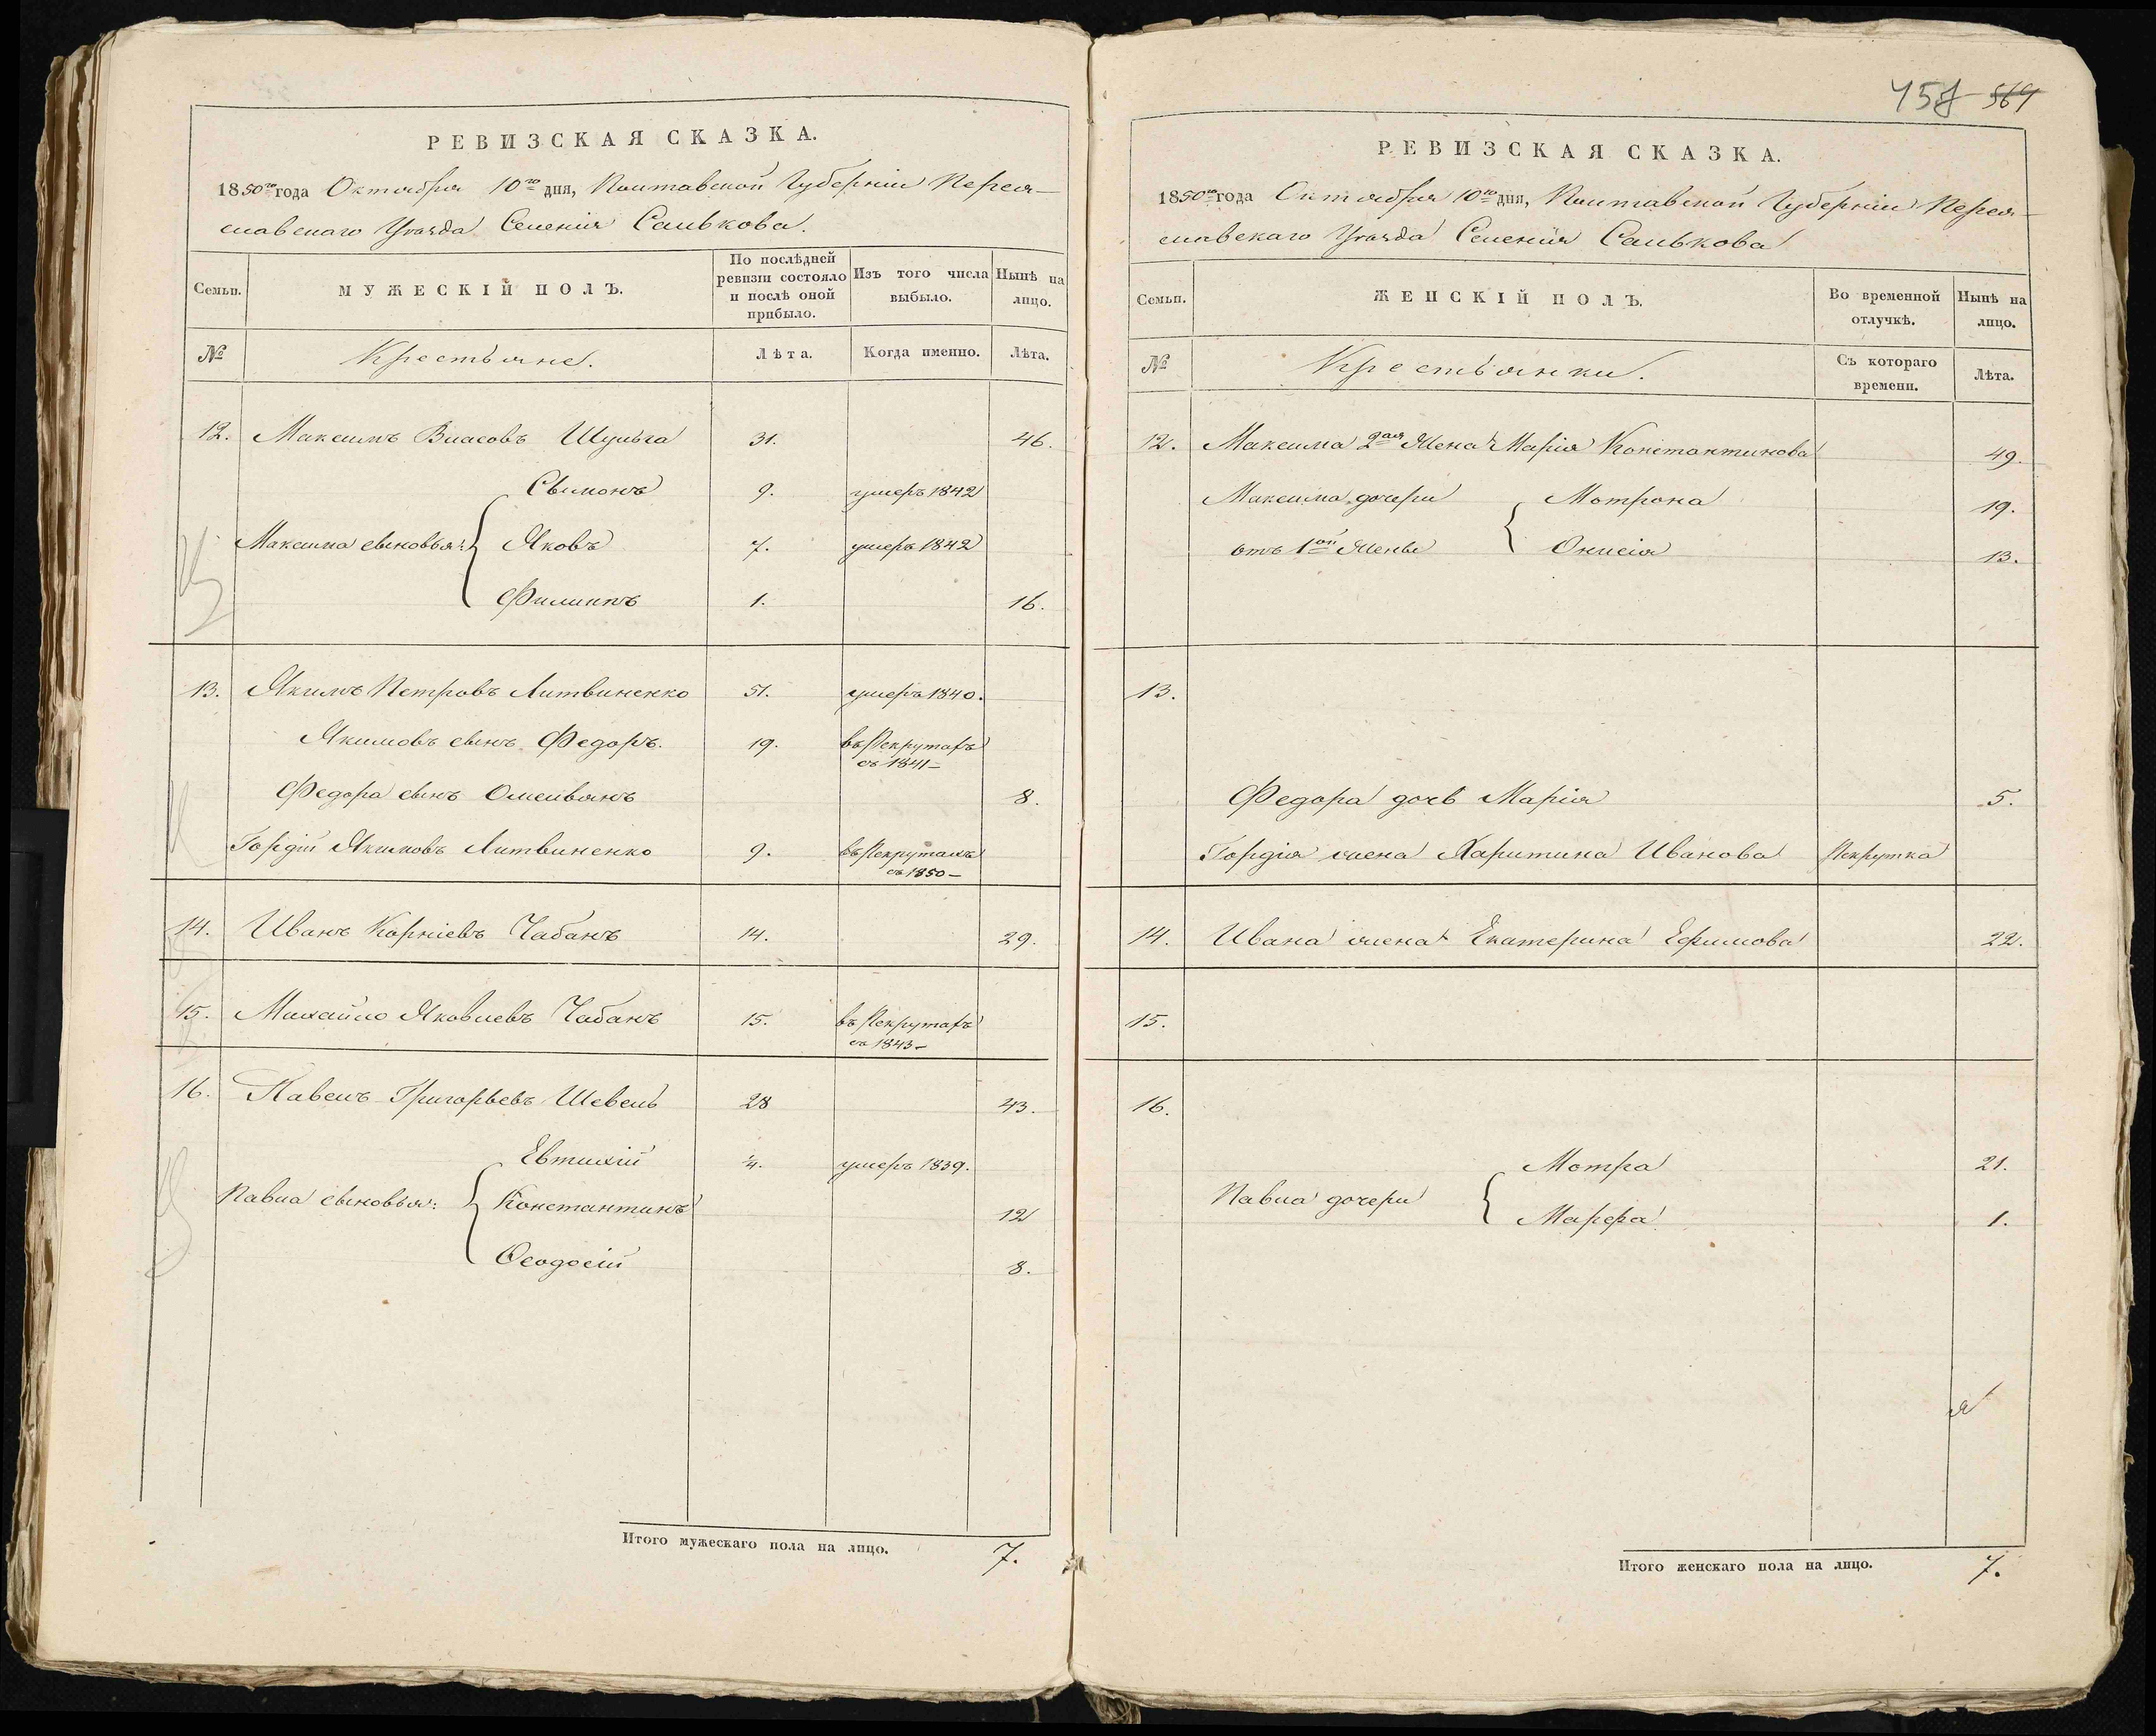 РЕВИЗСКАЯ СКАЗКА.
1850го года Октября 10го дня, Полтавской Губерніи Перея-
славскаго Уѣзда Селенія Салькова.
Семьи.
МУЖЕСКІЙ ПОЛЪ.
По послѣдней ревизіи состояло и послѣ оной прибыло.
Изъ того числа выбыло.
Нынѣ на лицо.
№
Крестьяне.
Лѣта.
Когда именно.
Лѣта.
12. Максимъ Власовъ Шульга 31. 46.
Сымонъ 9. умеръ 1842
Максима сыновья: Яковъ 7. умеръ 1842
Филиппъ 1. 16.
13. Якимъ Петровъ Литвиненко 51. умеръ 1840.
Якимовъ сынъ Федоръ. 19. въ Рекрутахъ
съ 1841–
Федора сынъ Омельянъ 8.
Гордій Якимовъ Литвиненко 9. въ Рекрутахъ
съ 1850–
14. Иванъ Корніевъ Чабанъ 14. 29.
15. Михайло Яковлевъ Чабанъ 15. въ Рекрутахъ
съ 1843–
16. Павелъ Григорьевъ Шевель 28 43.
Евтихій ¼. умеръ 1839.
Павла сыновья: Константинъ 12
Ѳеодосій 8.
Итого мужескаго пола на лицо. 7.
569
РЕВИЗСКАЯ СКАЗКА.
1850го года Октября 10го дня, Полтавской Губерніи Перея-
славскаго Уѣзда Селенія Салькова
Семьи.
ЖЕНСКІЙ ПОЛЪ.
Во временной отлучкѣ.
Нынѣ на лицо.
№
Крестьянки.
Съ котораго времени.
Лѣта.
12. Максима 2ая Жена Марія Константинова 49.
Максима дочери Мотрона 19.
отъ 1ой Жены Оксія 13.
13.
Федора дочь Марія 5.
Гордія жена Харитина Иванова Рекрутка
14. Ивана жена Екатерина Ефимова 22.
15.
16.
Мотра 21.
Павла дочери
Марфа 1.
Итого женскаго пола на лицо. 7.